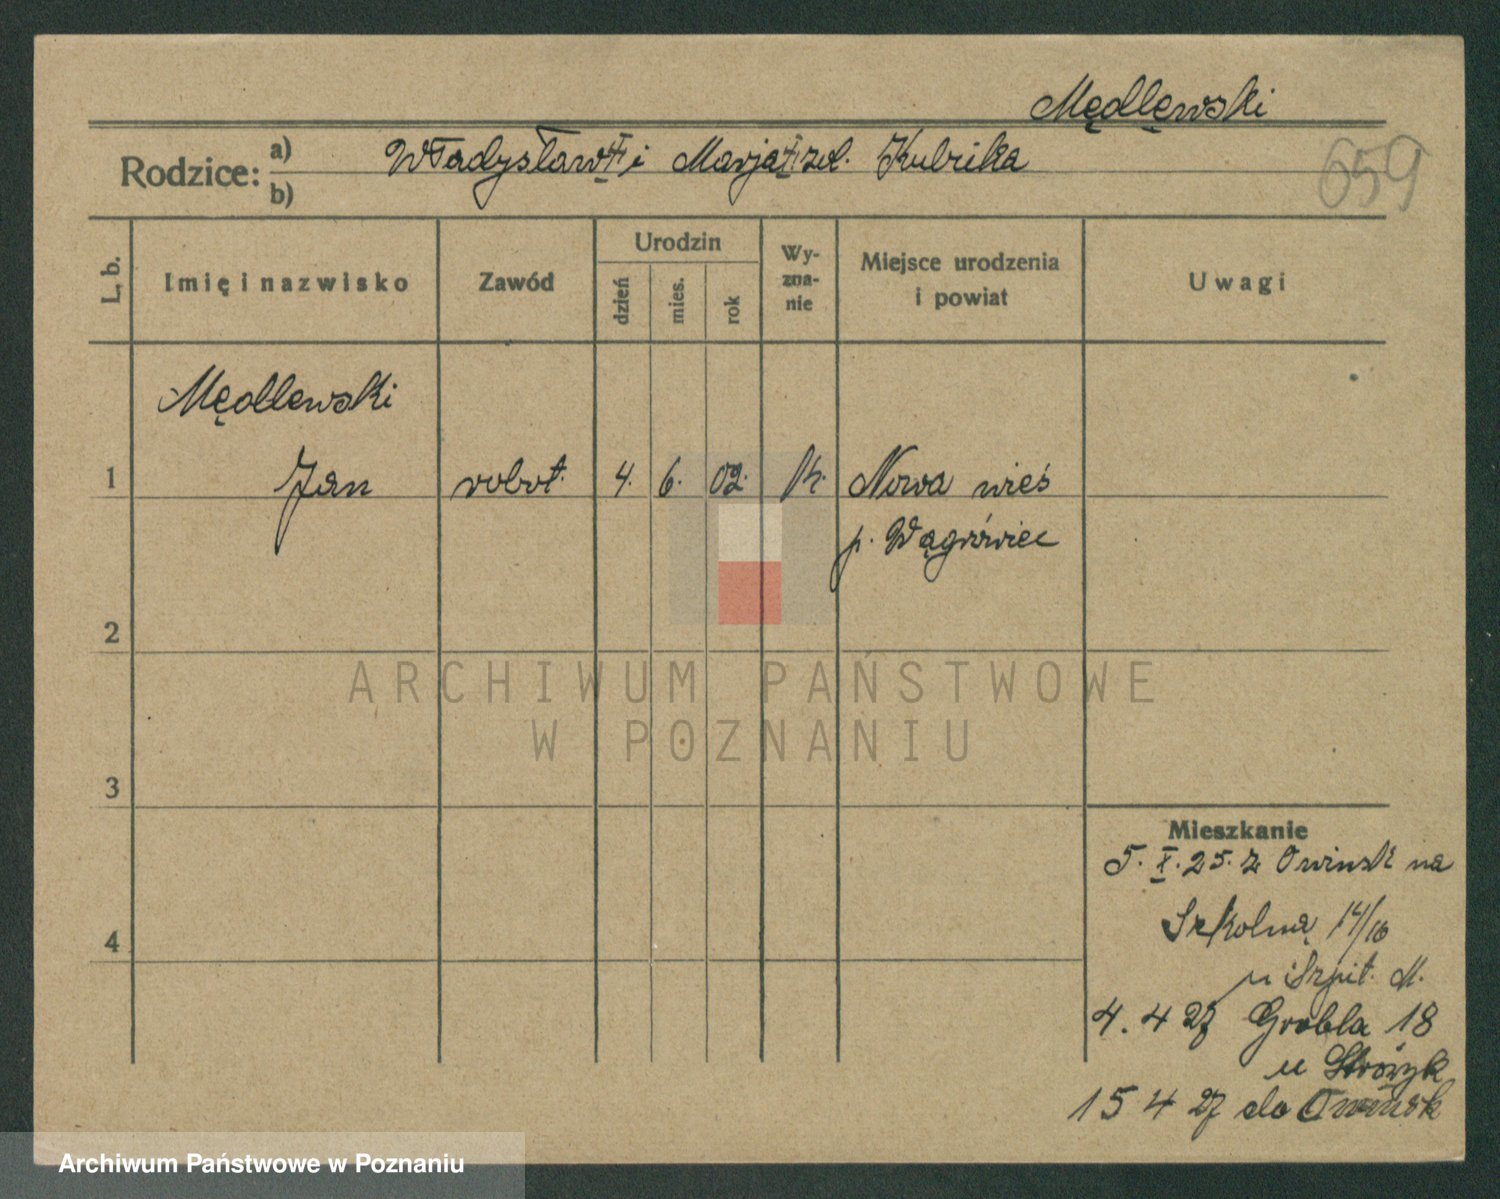 Mędlewski
Rodzice: a) Władysław † i Marja † zd. Kubicka
b)
659
L. b.
Imię i nazwisko
Zawód
Urodzin
dzień
mies.
rok
Wy-
zna-
nie
Miejsce urodzenia
i powiat
Uwagi
Mędlewski
1 Jan robot. 4. 6. 02. rk. Nowa wieś
p. Wągrówiec
2
3
4
Mieszkanie
5. X. 25. z Owińsk na
Szkolną 14/16
u Szpit. M.
4. 4 27 Grobla 18
u Stróżyk
15 4 27 do Owińsk
ARCHIWUM PAŃSTWOWE
W POZNANIU
Archiwum Państwowe w Poznaniu